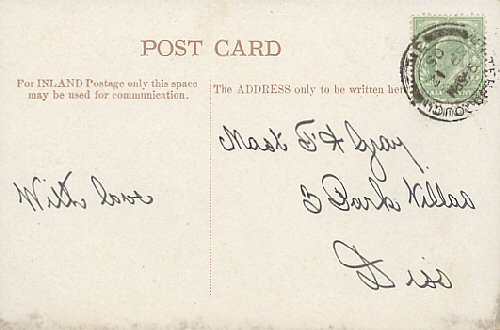 POST CARD
For INLAND Postage only this space
may be used for communication.
The ADDRESS only to be written here
With love
Mast F H Gray
3 Park Villas
Diss